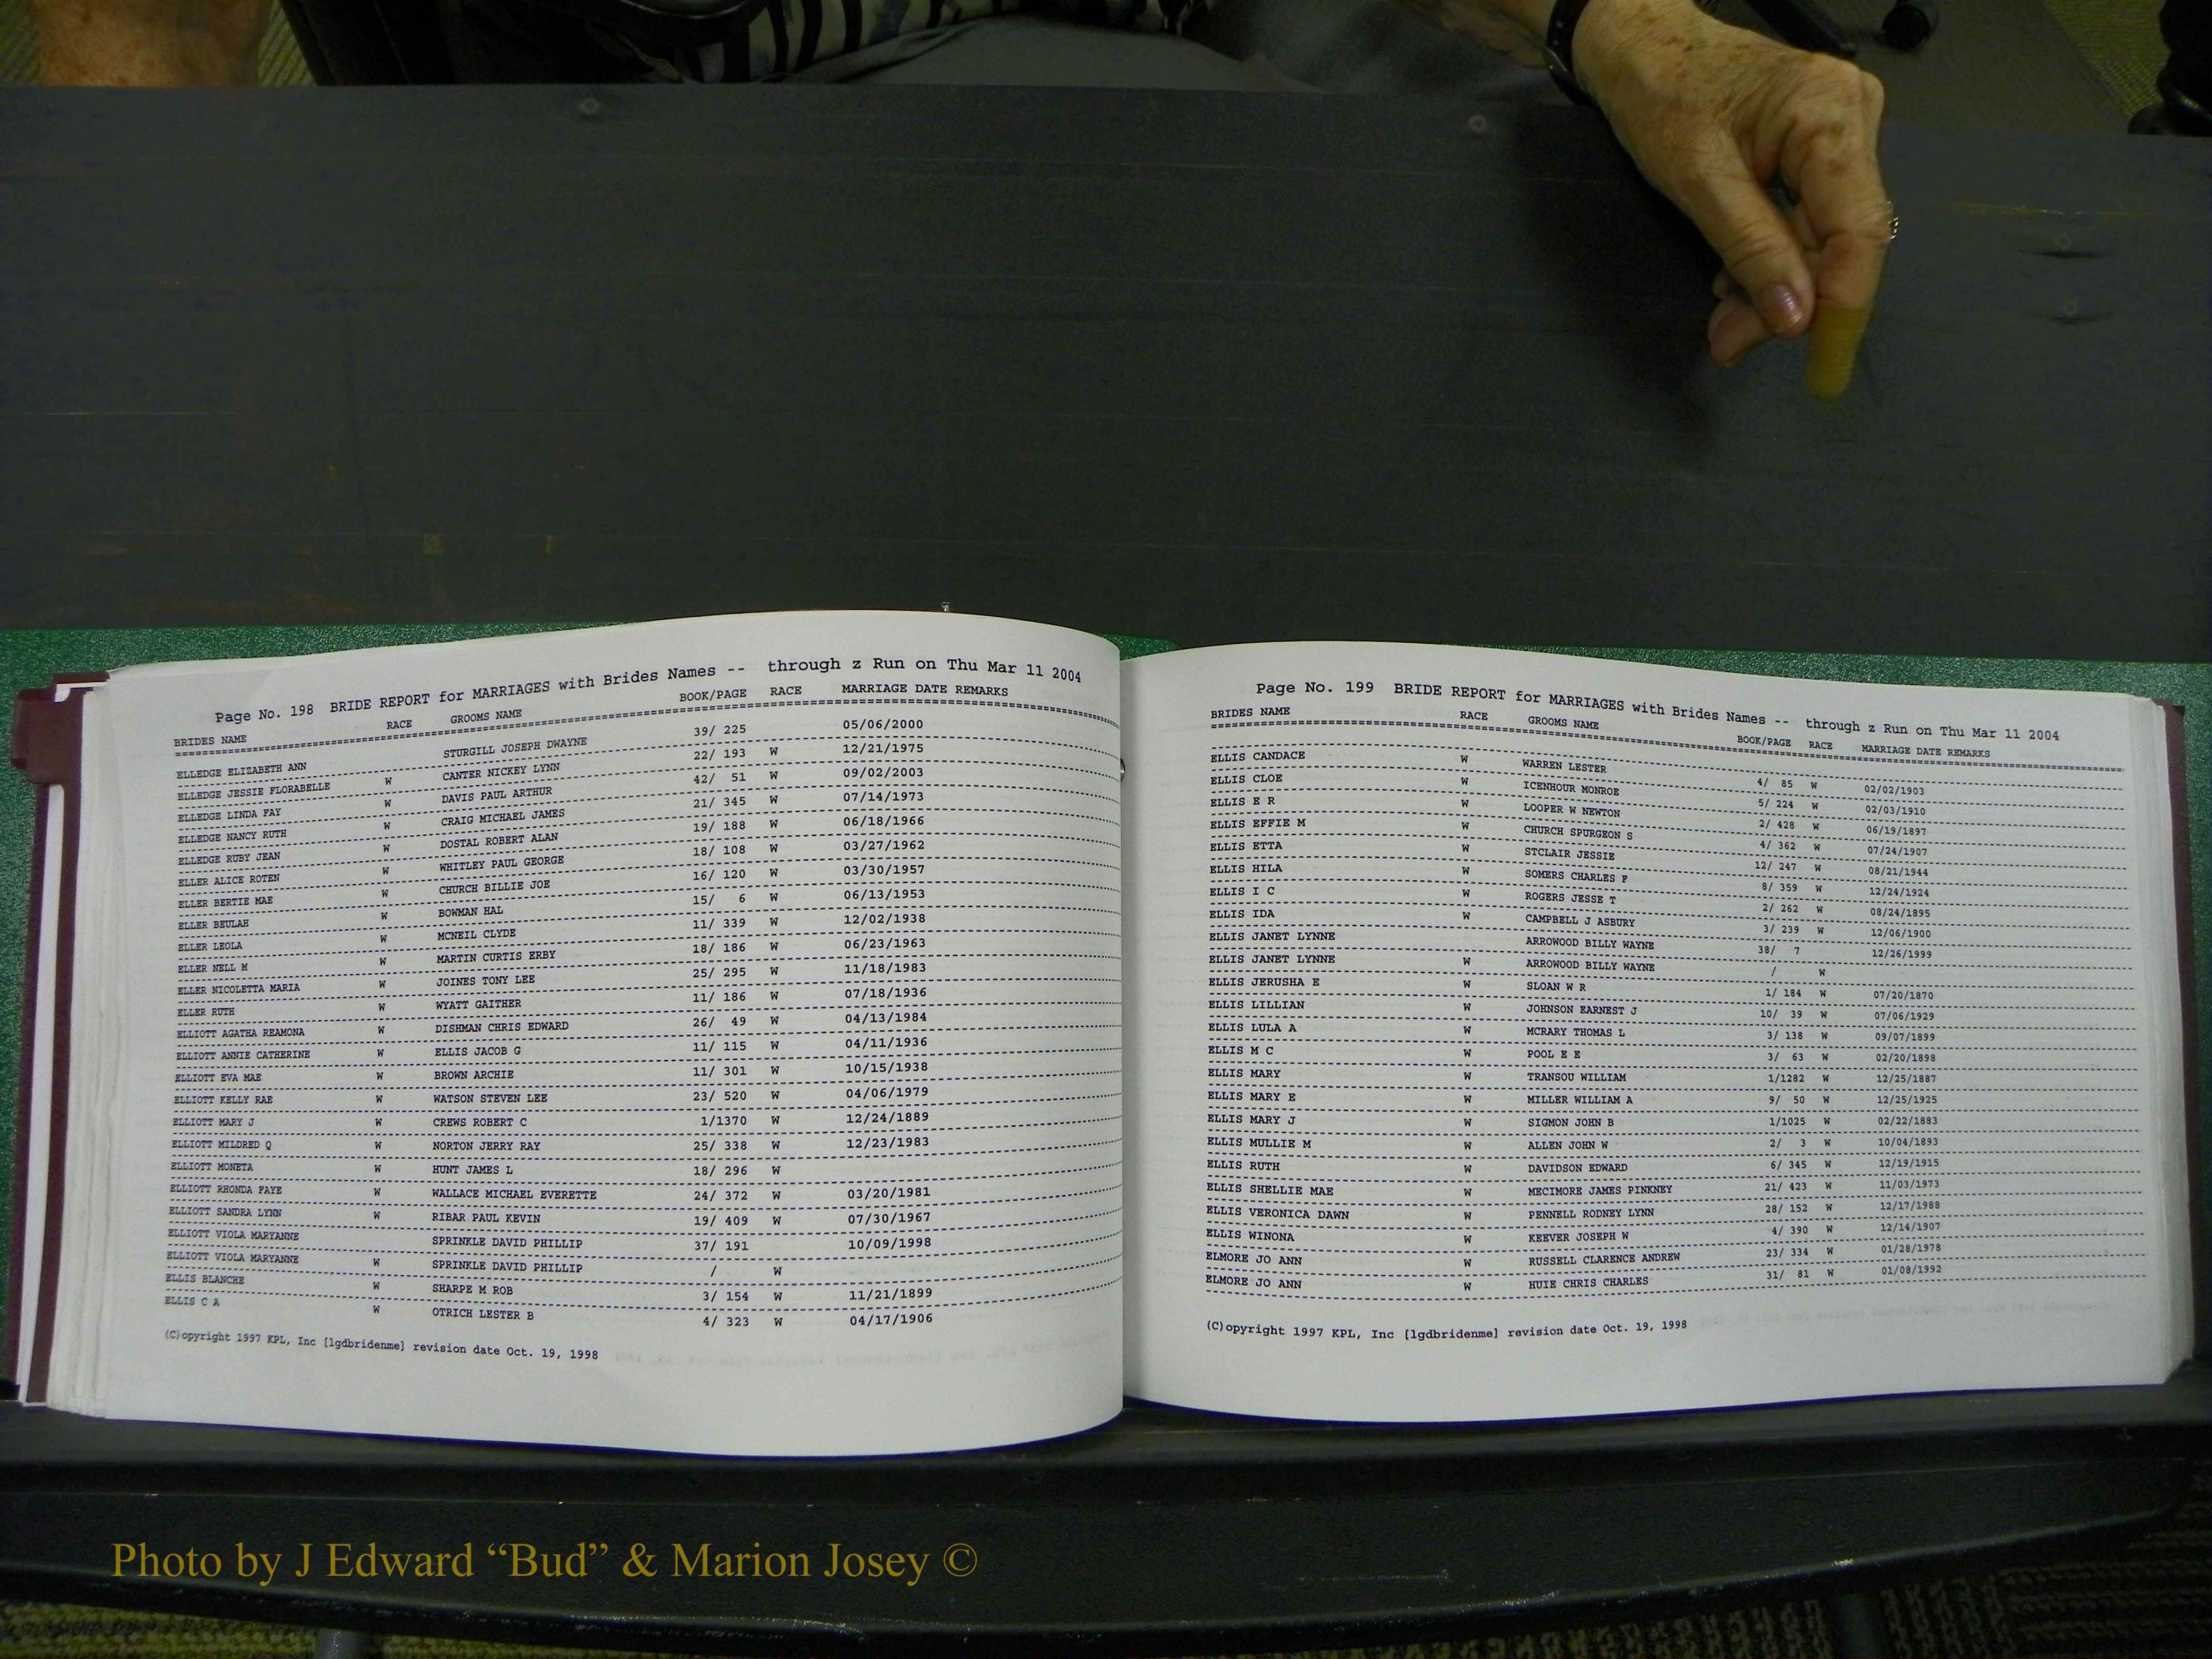 Page No. 198 BRIDE REPORT for MARRIAGES with Brides Names -- through z Run on Thu Mar 11 2004
BRIDES NAME RACE GROOMS NAME BOOK/PAGE RACE MARRIAGE DATE REMARKS
ELLEDGE ELIZABETH ANN STURGILL JOSEPH DWAYNE 39/ 225 05/06/2000
ELLEDGE JESSIE FLORABELLE W CANTER NICKEY LYNN 22/ 193 W 12/21/1975
ELLEDGE LINDA FAY W DAVIS PAUL ARTHUR 42/ 51 W 09/02/2003
ELLEDGE NANCY RUTH W CRAIG MICHAEL JAMES 21/ 345 W 07/14/1973
ELLEDGE RUBY JEAN W DOSTAL ROBERT ALAN 19/ 188 W 06/18/1966
ELLER ALICE ROTEN W WHITLEY PAUL GEORGE 18/ 108 W 03/27/1962
ELLER BERTIE MAE W CHURCH BILLIE JOE 16/ 120 W 03/30/1957
ELLER BEULAH W BOWMAN HAL 15/ 6 W 06/13/1953
ELLER LEOLA W MCNEIL CLYDE 11/ 339 W 12/02/1938
ELLER NELL M W MARTIN CURTIS ERBY 18/ 186 W 06/23/1963
ELLER NICOLETTA MARIA W JOINES TONY LEE 25/ 295 W 11/18/1983
ELLER RUTH W WYATT GAITHER 11/ 186 W 07/18/1936
ELLIOTT AGATHA REAMONA W DISHMAN CHRIS EDWARD 26/ 49 W 04/13/1984
ELLIOTT ANNIE CATHERINE W ELLIS JACOB G 11/ 115 W 04/11/1936
ELLIOTT EVA MAE W BROWN ARCHIE 11/ 301 W 10/15/1938
ELLIOTT KELLY RAE W WATSON STEVEN LEE 23/ 520 W 04/06/1979
ELLIOTT MARY J W CREWS ROBERT C 1/1370 W 12/24/1889
ELLIOTT MILDRED Q W NORTON JERRY RAY 25/ 338 W 12/23/1983
ELLIOTT MONETA W HUNT JAMES L 18/ 296 W
ELLIOTT RHONDA FAYE W WALLACE MICHAEL EVERETTE 24/ 372 W 03/20/1981
ELLIOTT SANDRA LYNN W RIBAR PAUL KEVIN 19/ 409 W 07/30/1967
ELLIOTT VIOLA MARYANNE SPRINKLE DAVID PHILLIP 37/ 191 10/09/1998
ELLIOTT VIOLA MARYANNE W SPRINKLE DAVID PHILLIP / W
ELLIS BLANCHE W SHARPE M ROB 3/ 154 W 11/21/1899
ELLIS C A W OTRICH LESTER B 4/ 323 W 04/17/1906
(C)opyright 1997 KPL, Inc [lgdbridenme] revision date Oct. 19, 1998
Page No. 199 BRIDE REPORT for MARRIAGES with Brides Names -- through z Run on Thu Mar 11 2004
BRIDES NAME RACE GROOMS NAME BOOK/PAGE RACE MARRIAGE DATE REMARKS
ELLIS CANDACE W WARREN LESTER 4/ 85 W 02/02/1903
ELLIS CLOE W ICENHOUR MONROE 5/ 224 W 02/03/1910
ELLIS E R W LOOPER W NEWTON 2/ 428 W 06/19/1897
ELLIS EFFIE M W CHURCH SPURGEON S 4/ 362 W 07/24/1907
ELLIS ETTA W STCLAIR JESSIE 12/ 247 W 08/21/1944
ELLIS HILA W SOMERS CHARLES F 8/ 359 W 12/24/1924
ELLIS I C W ROGERS JESSE T 2/ 262 W 08/24/1895
ELLIS IDA W CAMPBELL J ASBURY 3/ 239 W 12/06/1900
ELLIS JANET LYNNE ARROWOOD BILLY WAYNE 38/ 7 12/26/1999
ELLIS JANET LYNNE W ARROWOOD BILLY WAYNE / W
ELLIS JERUSHA E W SLOAN W R 1/ 184 W 07/20/1870
ELLIS LILLIAN W JOHNSON EARNEST J 10/ 39 W 07/06/1929
ELLIS LULA A W MCRARY THOMAS L 3/ 138 W 09/07/1899
ELLIS M C W POOL E E 3/ 63 W 02/20/1898
ELLIS MARY W TRANSOU WILLIAM 1/1282 W 12/25/1887
ELLIS MARY E W MILLER WILLIAM A 9/ 50 W 12/25/1925
ELLIS MARY J W SIGMON JOHN B 1/1025 W 02/22/1883
ELLIS MULLIE M W ALLEN JOHN W 2/ 3 W 10/04/1893
ELLIS RUTH W DAVIDSON EDWARD 6/ 345 W 12/19/1915
ELLIS SHELLIE MAE W MECIMORE JAMES PINKNEY 21/ 423 W 11/03/1973
ELLIS VERONICA DAWN W PENNELL RODNEY LYNN 28/ 152 W 12/17/1988
ELLIS WINONA W KEEVER JOSEPH W 4/ 390 W 12/14/1907
ELMORE JO ANN W RUSSELL CLARENCE ANDREW 23/ 334 W 01/28/1978
ELMORE JO ANN W HUIE CHRIS CHARLES 31/ 81 W 01/08/1992
(C)opyright 1997 KPL, Inc [lgdbridenme] revision date Oct. 19, 1998
Photo by J Edward “Bud” & Marion Josey ©